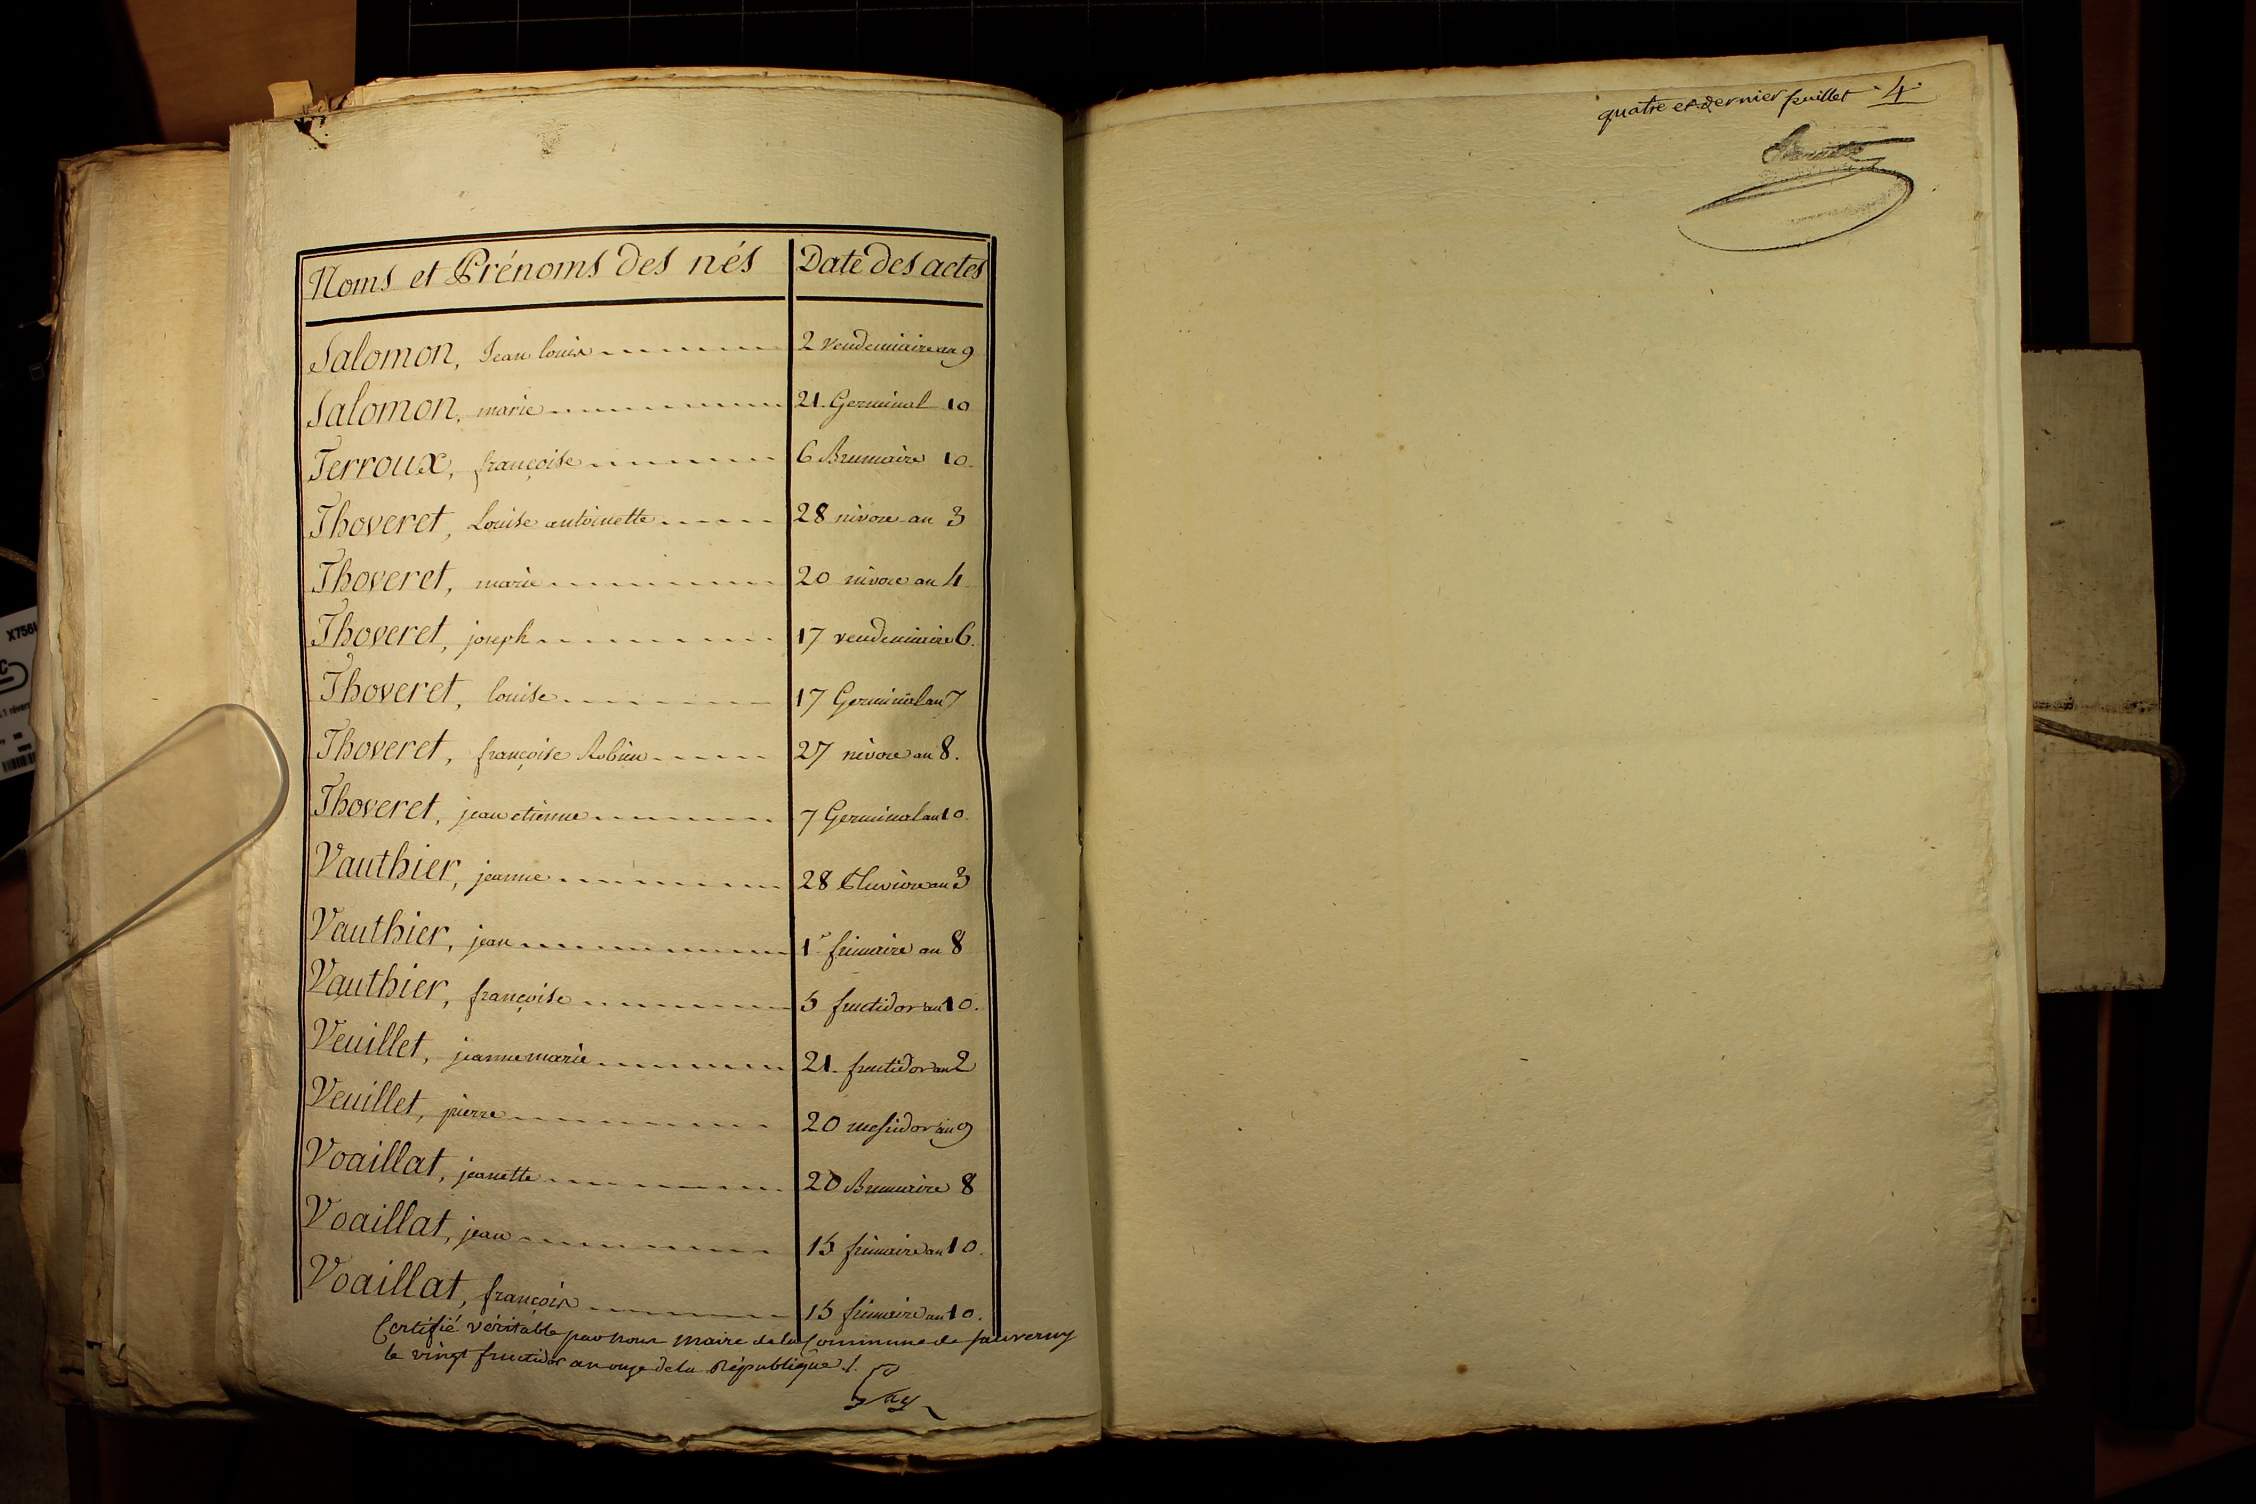 Noms et Prénoms des nés Date des actes
Salomon, Jean louis 2 vendemiaire an 9
Salomon, marie 21. Germinal 10
Terroux, françoise 6 Brumaire 10.
Thoveret, Louise antoinette 28 nivose an 3
Thoveret, marie 20 nivose an 4
Thoveret, joseph 17 vendemiaire 6.
Thoveret, louise 17 Germinal an 7
Thoveret, françoise Robine 27 nivose an 8.
Thoveret, jean etienne 7 Germinal an 10.
Vauthier, jeanne 28 Pluviose an 3
Vauthier, jean 1r frimaire an 8
Vauthier, françoise 5 fructidor an 10.
Veuillet, jeanne marie 21. fructidor an 2
Veuillet, pierre 20 messidor an 9
Voaillat, jeanette 20 Brumaire 8
Voaillat, jean 15 frimaire an 10.
Voaillat, françois 15 frimaire an 10.
Certifié véritable par nous maire de la Commune de Sauverny
le vingt fructidor an onze de la République ./.
quatre et dernier feuillet 4
X756